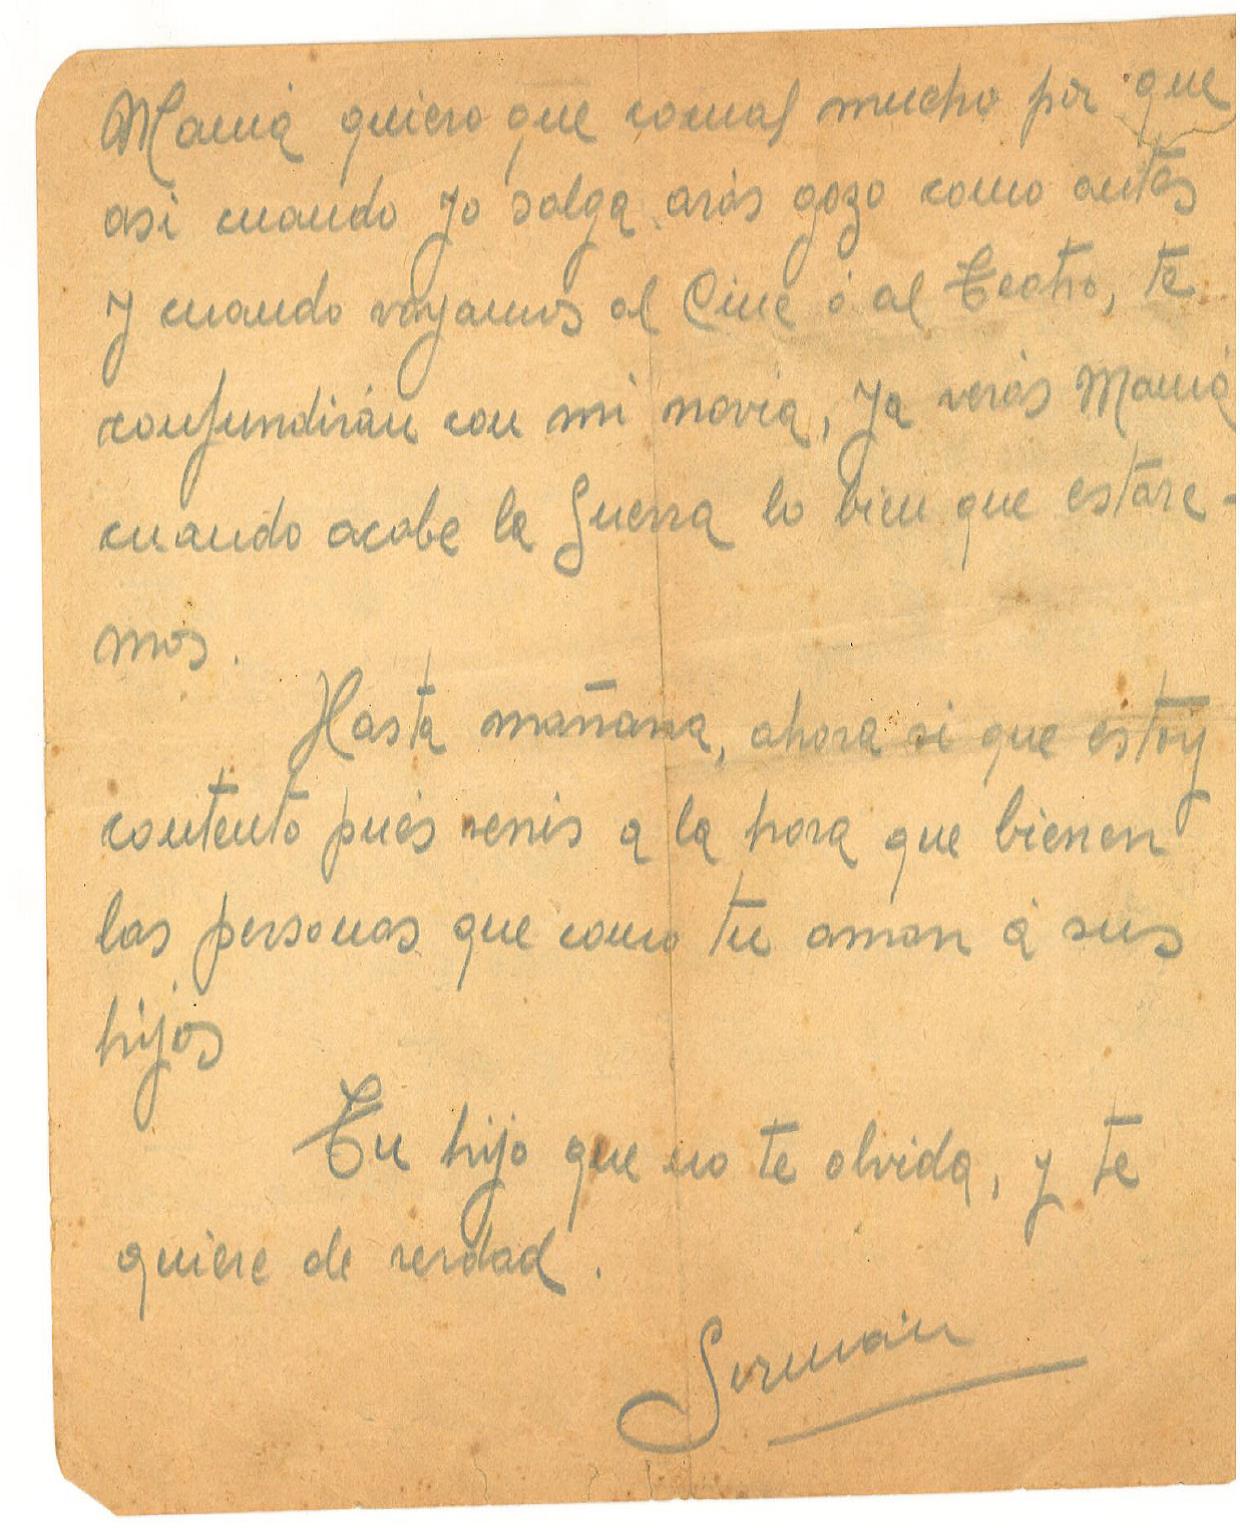 Mamá quiero que comas mucho por que
asi cuando yo salga arás gozo como antes
y cuando vayamos al Cine ó al Teatro, te
confundirán con mi novia, ya verás Mamá
cuando acabe la Guerra lo bien que estare-
mos.
Hasta mañana, ahora si que estoy
contento pués venis a la hora que bienen
las personas que como tu aman á sus
hijos
Tu hijo que no te olvida, y te
quiere de verdad.
Germán